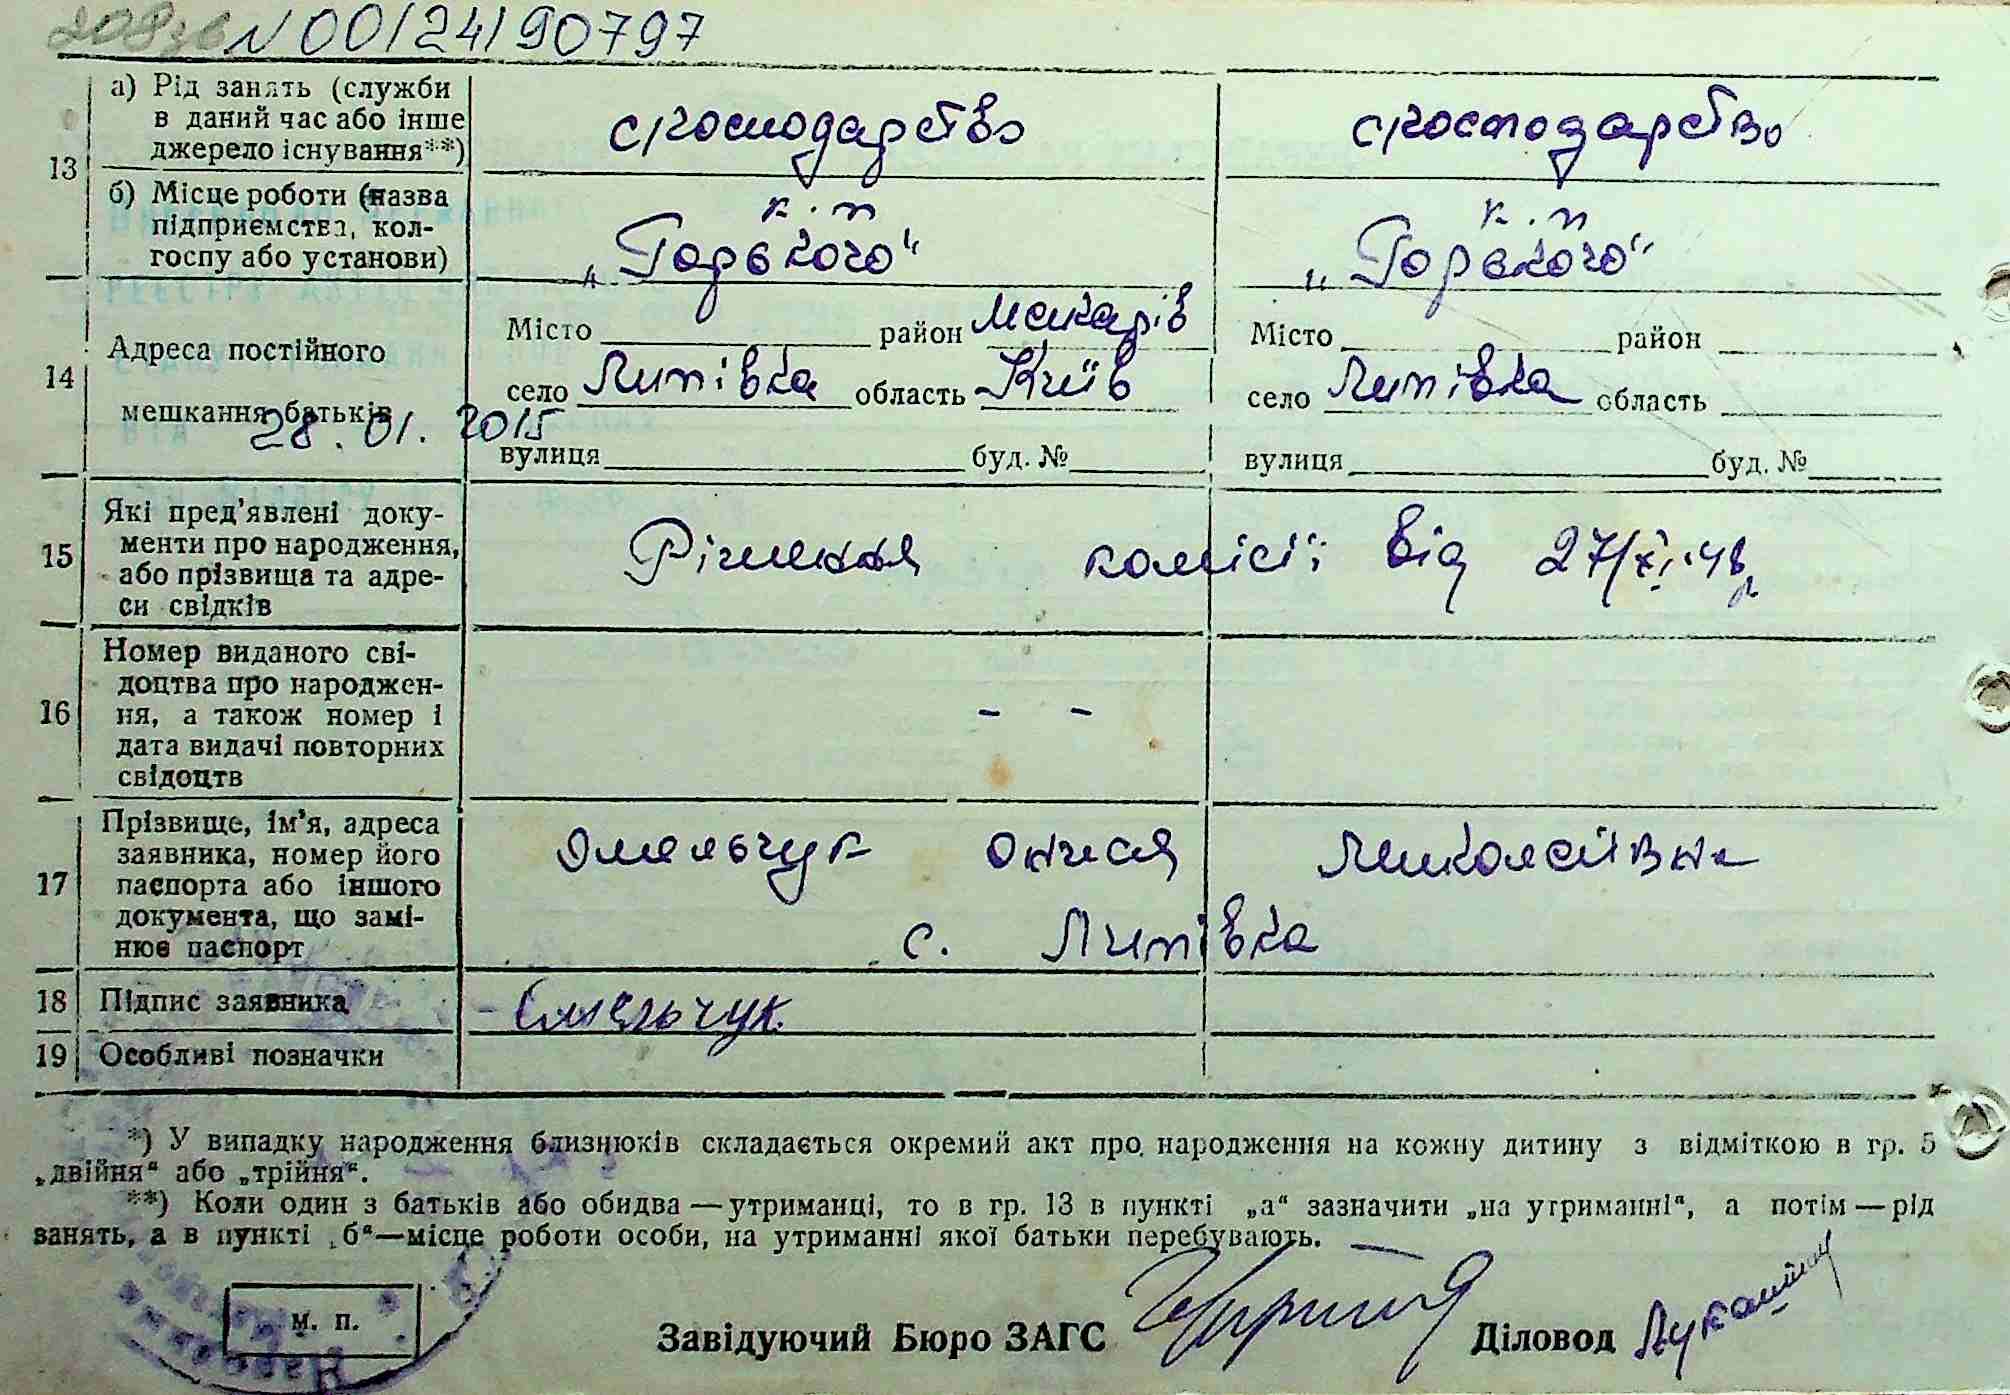 208зв N 00124190797
13
а) Рід занять (служби в даний час або інше джерело існування**)
с/господарство
с/господарство
б) Місце роботи (назва підприємства, колгоспу або установи)
к-п
„Горького“
к-п
„Горького“
14
Адреса постійного мешкання батьків
28.01.2015
Місто район Макарів
село Липівка область Київ
вулиця буд. №
Місто район
село Липівка область
вулиця буд. №
15
Які пред’явлені документи про народження, або прізвища та адреси свідків
Рішення комісії від 27/XI-48р
16
Номер виданого свідоцтва про народження, а також номер і дата видачі повторних свідоцтв
- -
17
Прізвище, ім’я, адреса заявника, номер його паспорта або іншого документа, що замінює паспорт
Омельчук Онися Миколаївна
с. Липівка
18
Підпис заявника
Емельчук
19
Особливі позначки
*) У випадку народження близнюків складається окремий акт про народження на кожну дитину з відміткою в гр. 5
„двійня“ або „трійня“.
**) Коли один з батьків або обидва — утриманці, то в гр. 13 в пункті „а“ зазначити „на утриманні“, а потім — рід
занять, а в пункті „б“—місце роботи особи, на утриманні якої батьки перебувають.
м. п.
Завідуючий Бюро ЗАГС
Діловод